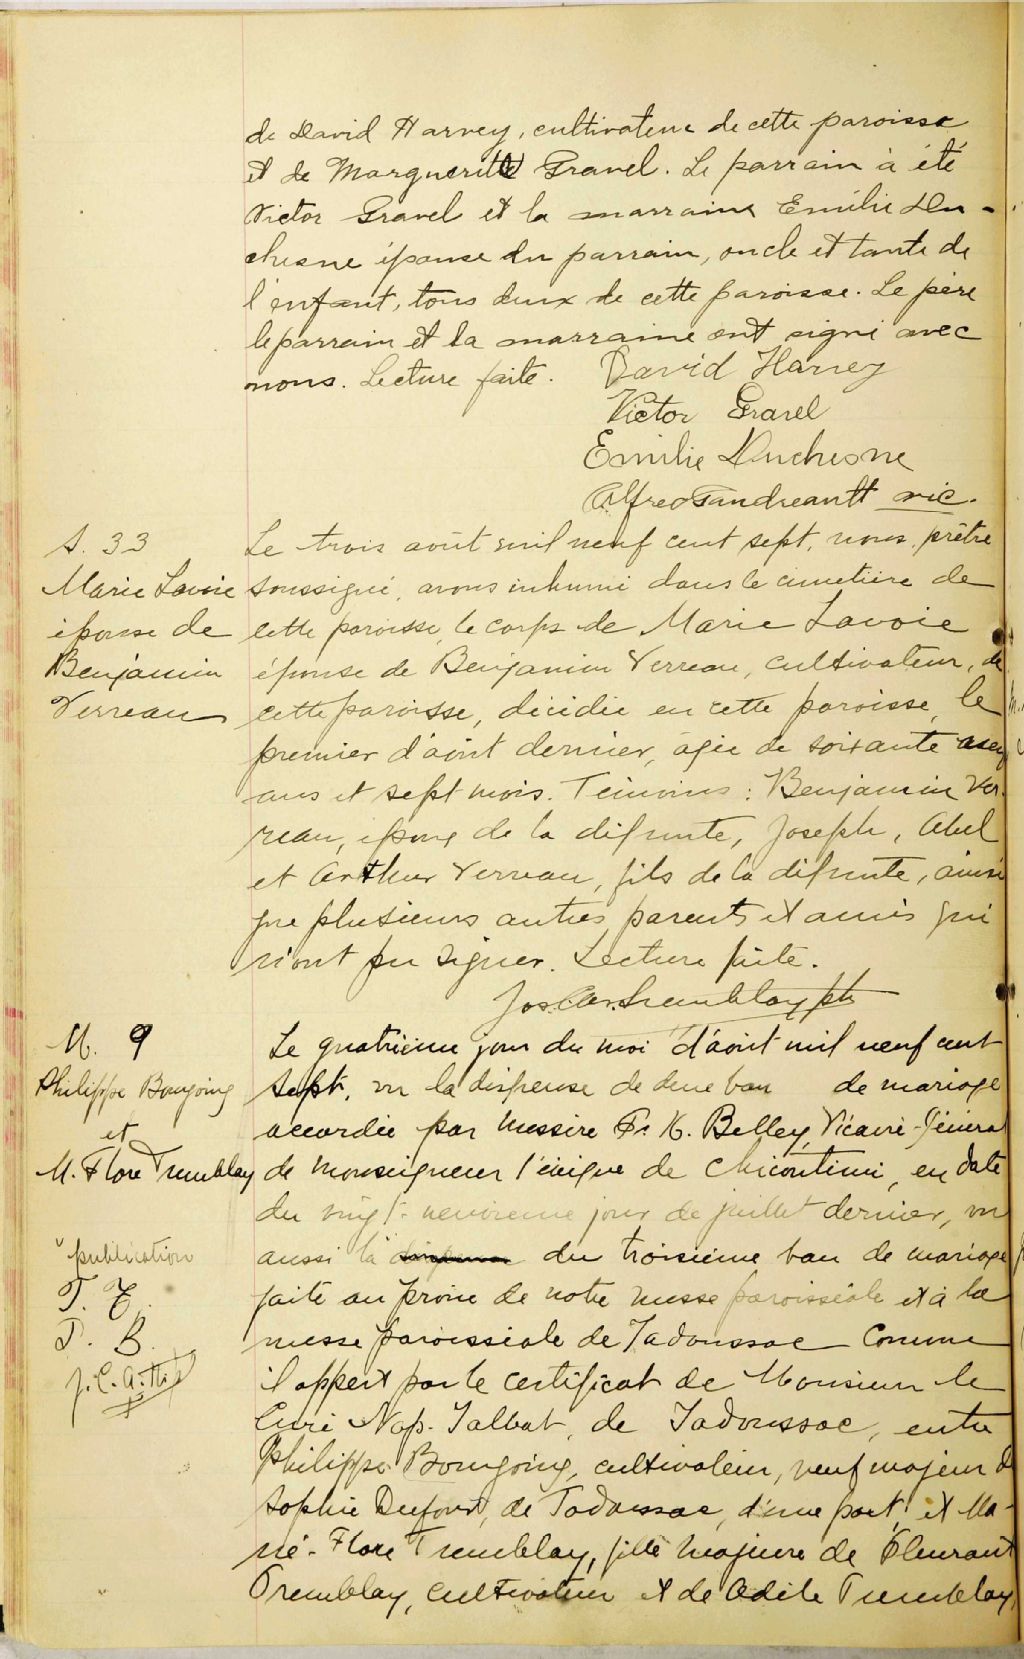 de David Harvey, cultivateur de cette paroisse
et de Marguerite Gravel. Le parrain à été
Victor Gravel et la marraine Emilie Du-
chesne épouse du parrain, oncle et tante de
l'enfant, tous deux de cette paroisse. Le père
le parrain et la marraine ont signé avec
nous. Lecture faite. David Harvey
Victor Gravel
Emilie Duchesne
Alfred Gaudreault vic.
S. 33
Marie Lavoie
épouse de
Benjamin
Verreau
Le trois août mil neuf cent sept, nous, prêtre
soussigné, avons inhumé dans le cimetière de
cette paroisse, le corps de Marie Lavoie
épouse de Benjamin Verreau, cultivateur, de
cette paroisse, décédée en cette paroisse, le
premier d'août dernier, agée de soixante
ans et sept mois. Témoins : Benjamin Ver-
reau, époux de la défunte, Joseph, Abel
et Arthur Verreau, fils de la défunte, ainsi
que plusieurs autres parents et amis qui
n'ont pu signer. Lecture faite.
Jos. Tremblay ptr
M. 9
Philippe Bourgoing
et
M. Flore Tremblay
publication
T. T.
P. B.
Le quatrième jour du moi d'août mil neuf cent
sept, vu la dispense de deux ban de mariage
accordée par Messire Fr. H. Belley, Vicaire-Général
de Monseigneur l'évêque de Chicoutimi, en date
du vingt-neuvième jour de juillet dernier, vu
aussi la du troisième ban de mariage
faite au prône de notre messe paroissiale et à la
messe paroissiale de Tadoussac Comme
il appert par le certificat de Monsieur le
Curé Nap. Talbot, de Tadoussac, entre
Philippe Bourgoing, cultivateur, veuf majeur de
Sophie Dufour, de Tadoussac, d'une part, et Ma-
rie-Flore Tremblay, fille majeure de Fleurant
Tremblay, cultivateur et de Odile Tremblay,